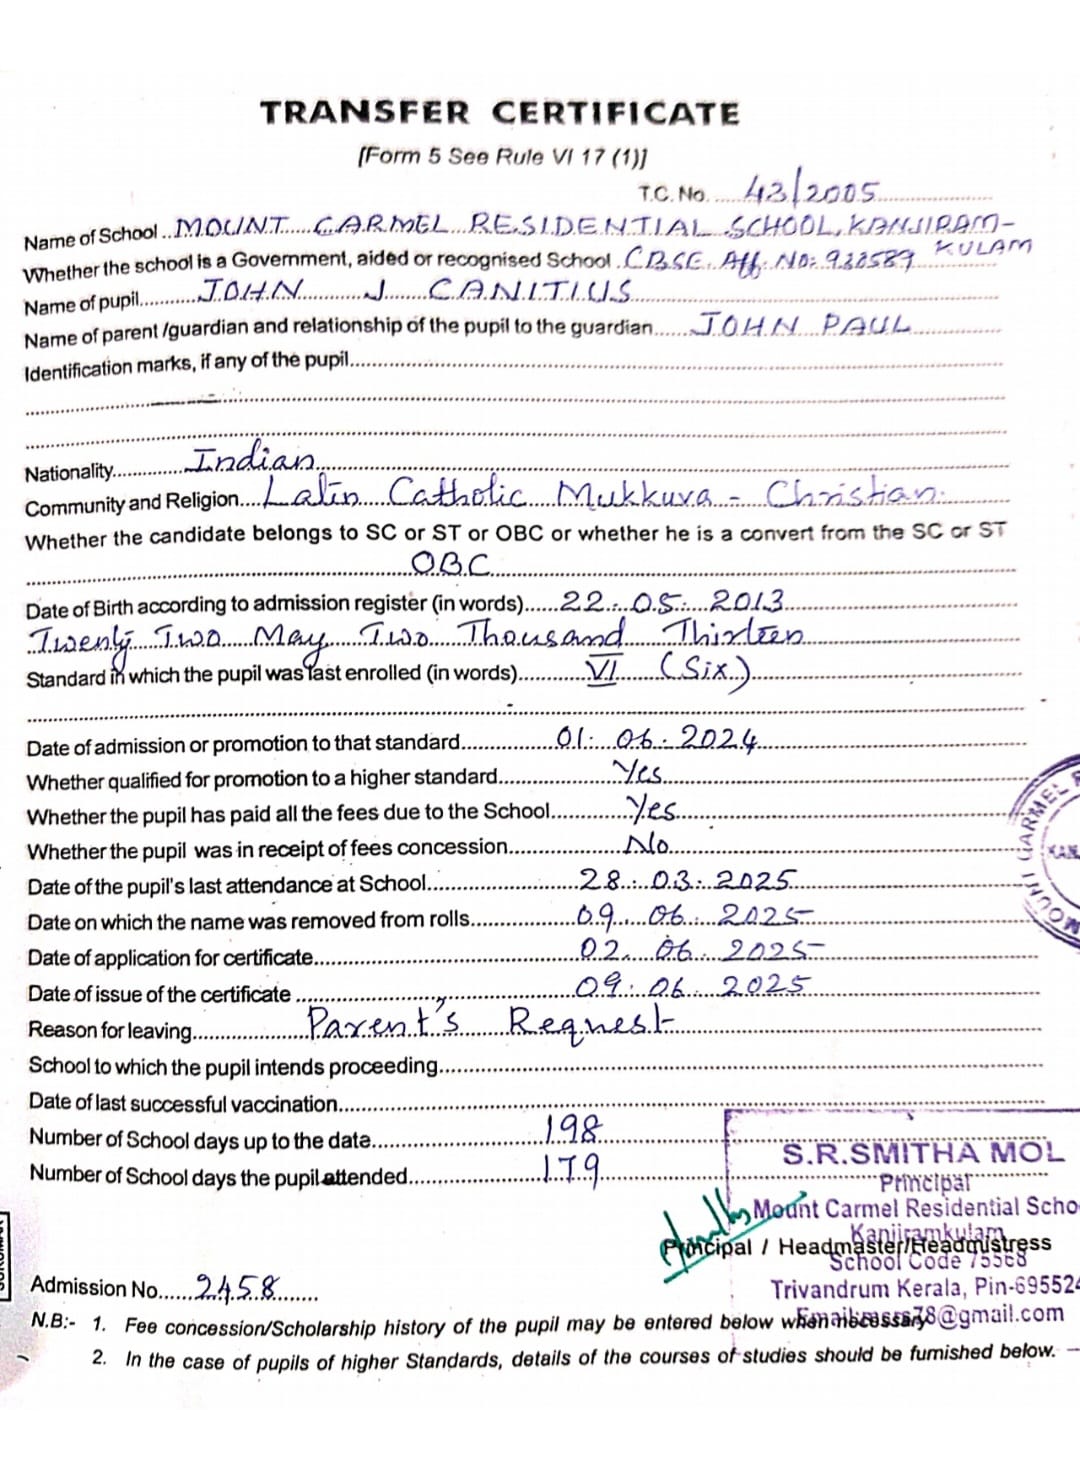 TRANSFER CERTIFICATE
[Form 5 See Rule VI 17 (1)]
T.C. No. 43/2005
Name of School MOUNT CARMEL RESIDENTIAL SCHOOL, KANJIRAM-
KULAM
Whether the school is a Government, aided or recognised School CBSE. Aff. No: 930589
Name of pupil JOHN J CANITIUS
Name of parent /guardian and relationship of the pupil to the guardian JOHN PAUL
Identification marks, if any of the pupil
Nationality Indian
Community and Religion Latin Catholic Mukkuva - Christian.
Whether the candidate belongs to SC or ST or OBC or whether he is a convert from the SC or ST
OBC
Date of Birth according to admission register (in words) 22.05.2013
Twenty Two May Two Thousand Thirteen
Standard in which the pupil was last enrolled (in words) VI (Six)
Date of admission or promotion to that standard 01.06.2024
Whether qualified for promotion to a higher standard Yes
Whether the pupil has paid all the fees due to the School Yes
Whether the pupil was in receipt of fees concession No
Date of the pupil's last attendance at School 28.03.2025
Date on which the name was removed from rolls 09.06.2025
Date of application for certificate 02.06.2025
Date of issue of the certificate 09.06.2025
Reason for leaving Parent's Request
School to which the pupil intends proceeding
Date of last successful vaccination
Number of School days up to the date 198
Number of School days the pupil attended 179
S.R.SMITHA MOL
Principal
Mount Carmel Residential Scho
Kanjiramkulam
Principal / Headmaster/Headmistress
School Code 75568
Trivandrum Kerala, Pin-695524
Admission No. 2458
N.B:- 1. Fee concession/Scholarship history of the pupil may be entered below when necessary
2. In the case of pupils of higher Standards, details of the courses of studies should be furnished below.